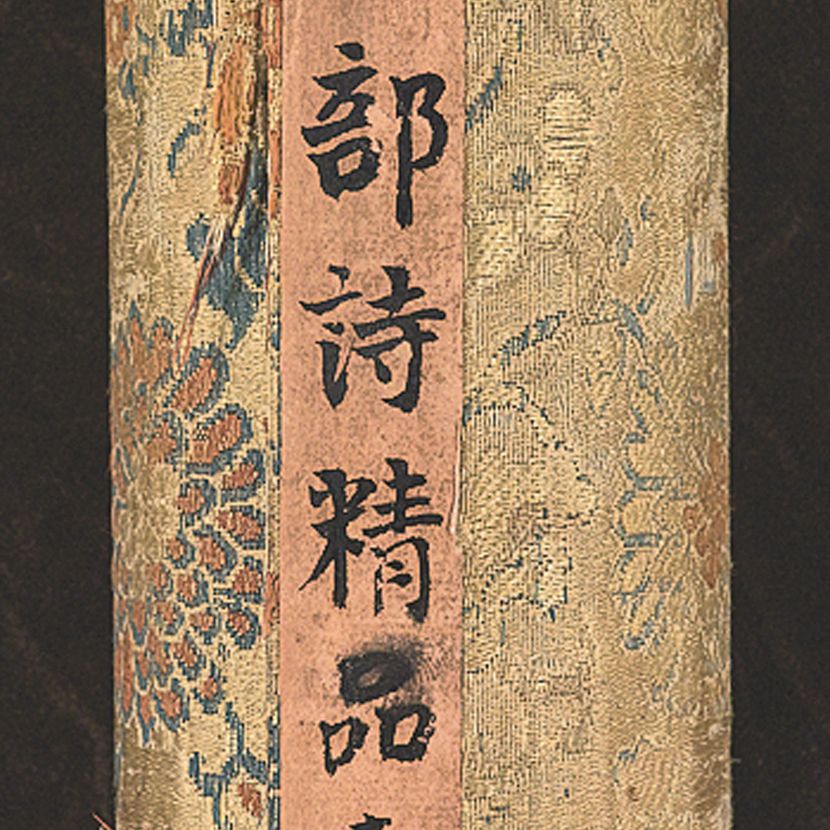 部詩精品